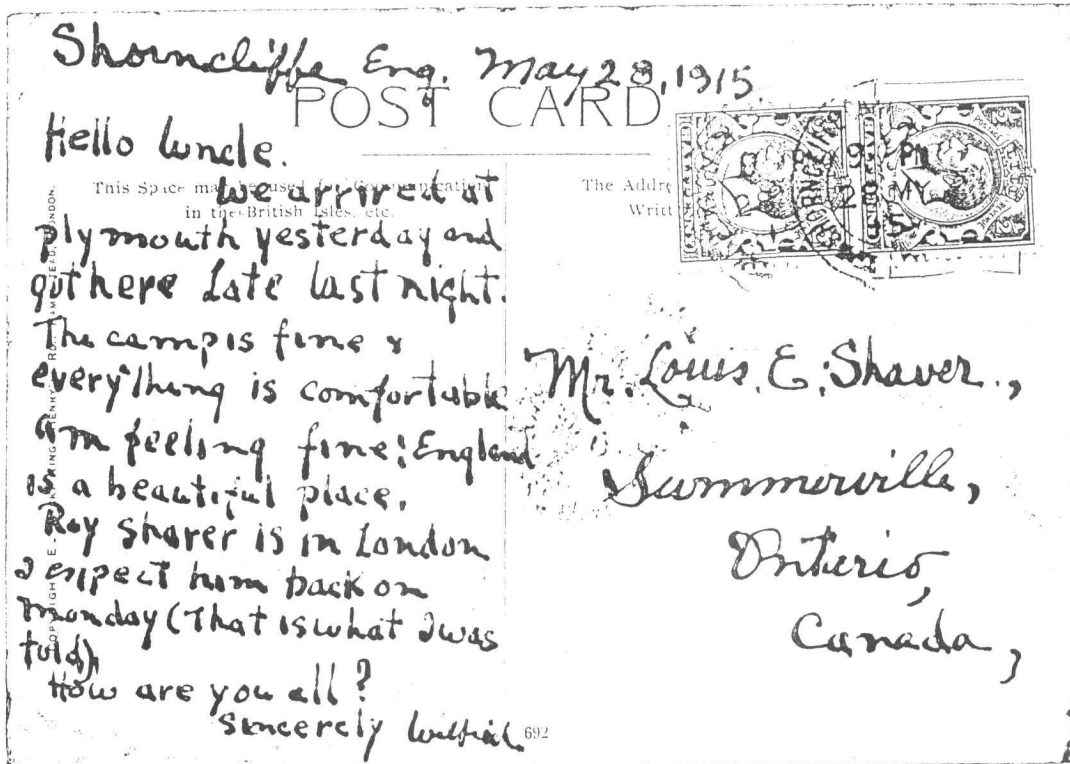 Shorncliffe Eng. May 28, 1915
POST CARD
Hello Uncle.
This Space may be used for Communication
in the British Isles, etc.
The Addre
Writt
We arrived at
plymouth yesterday and
got here Late last night.
The camp is fine &
everything is comfortable
I'm feeling fine; England
is a beautiful place.
Roy Shaver is in London
I expect him back on
Monday (That is what I was
told).
How are you all?
Sincerely Wilfrid
Mr. Louis. E. Shaver.,
Summerville,
Ontario,
Canada,
SHORNCLIFFE
9 PM
28 MY
15
692